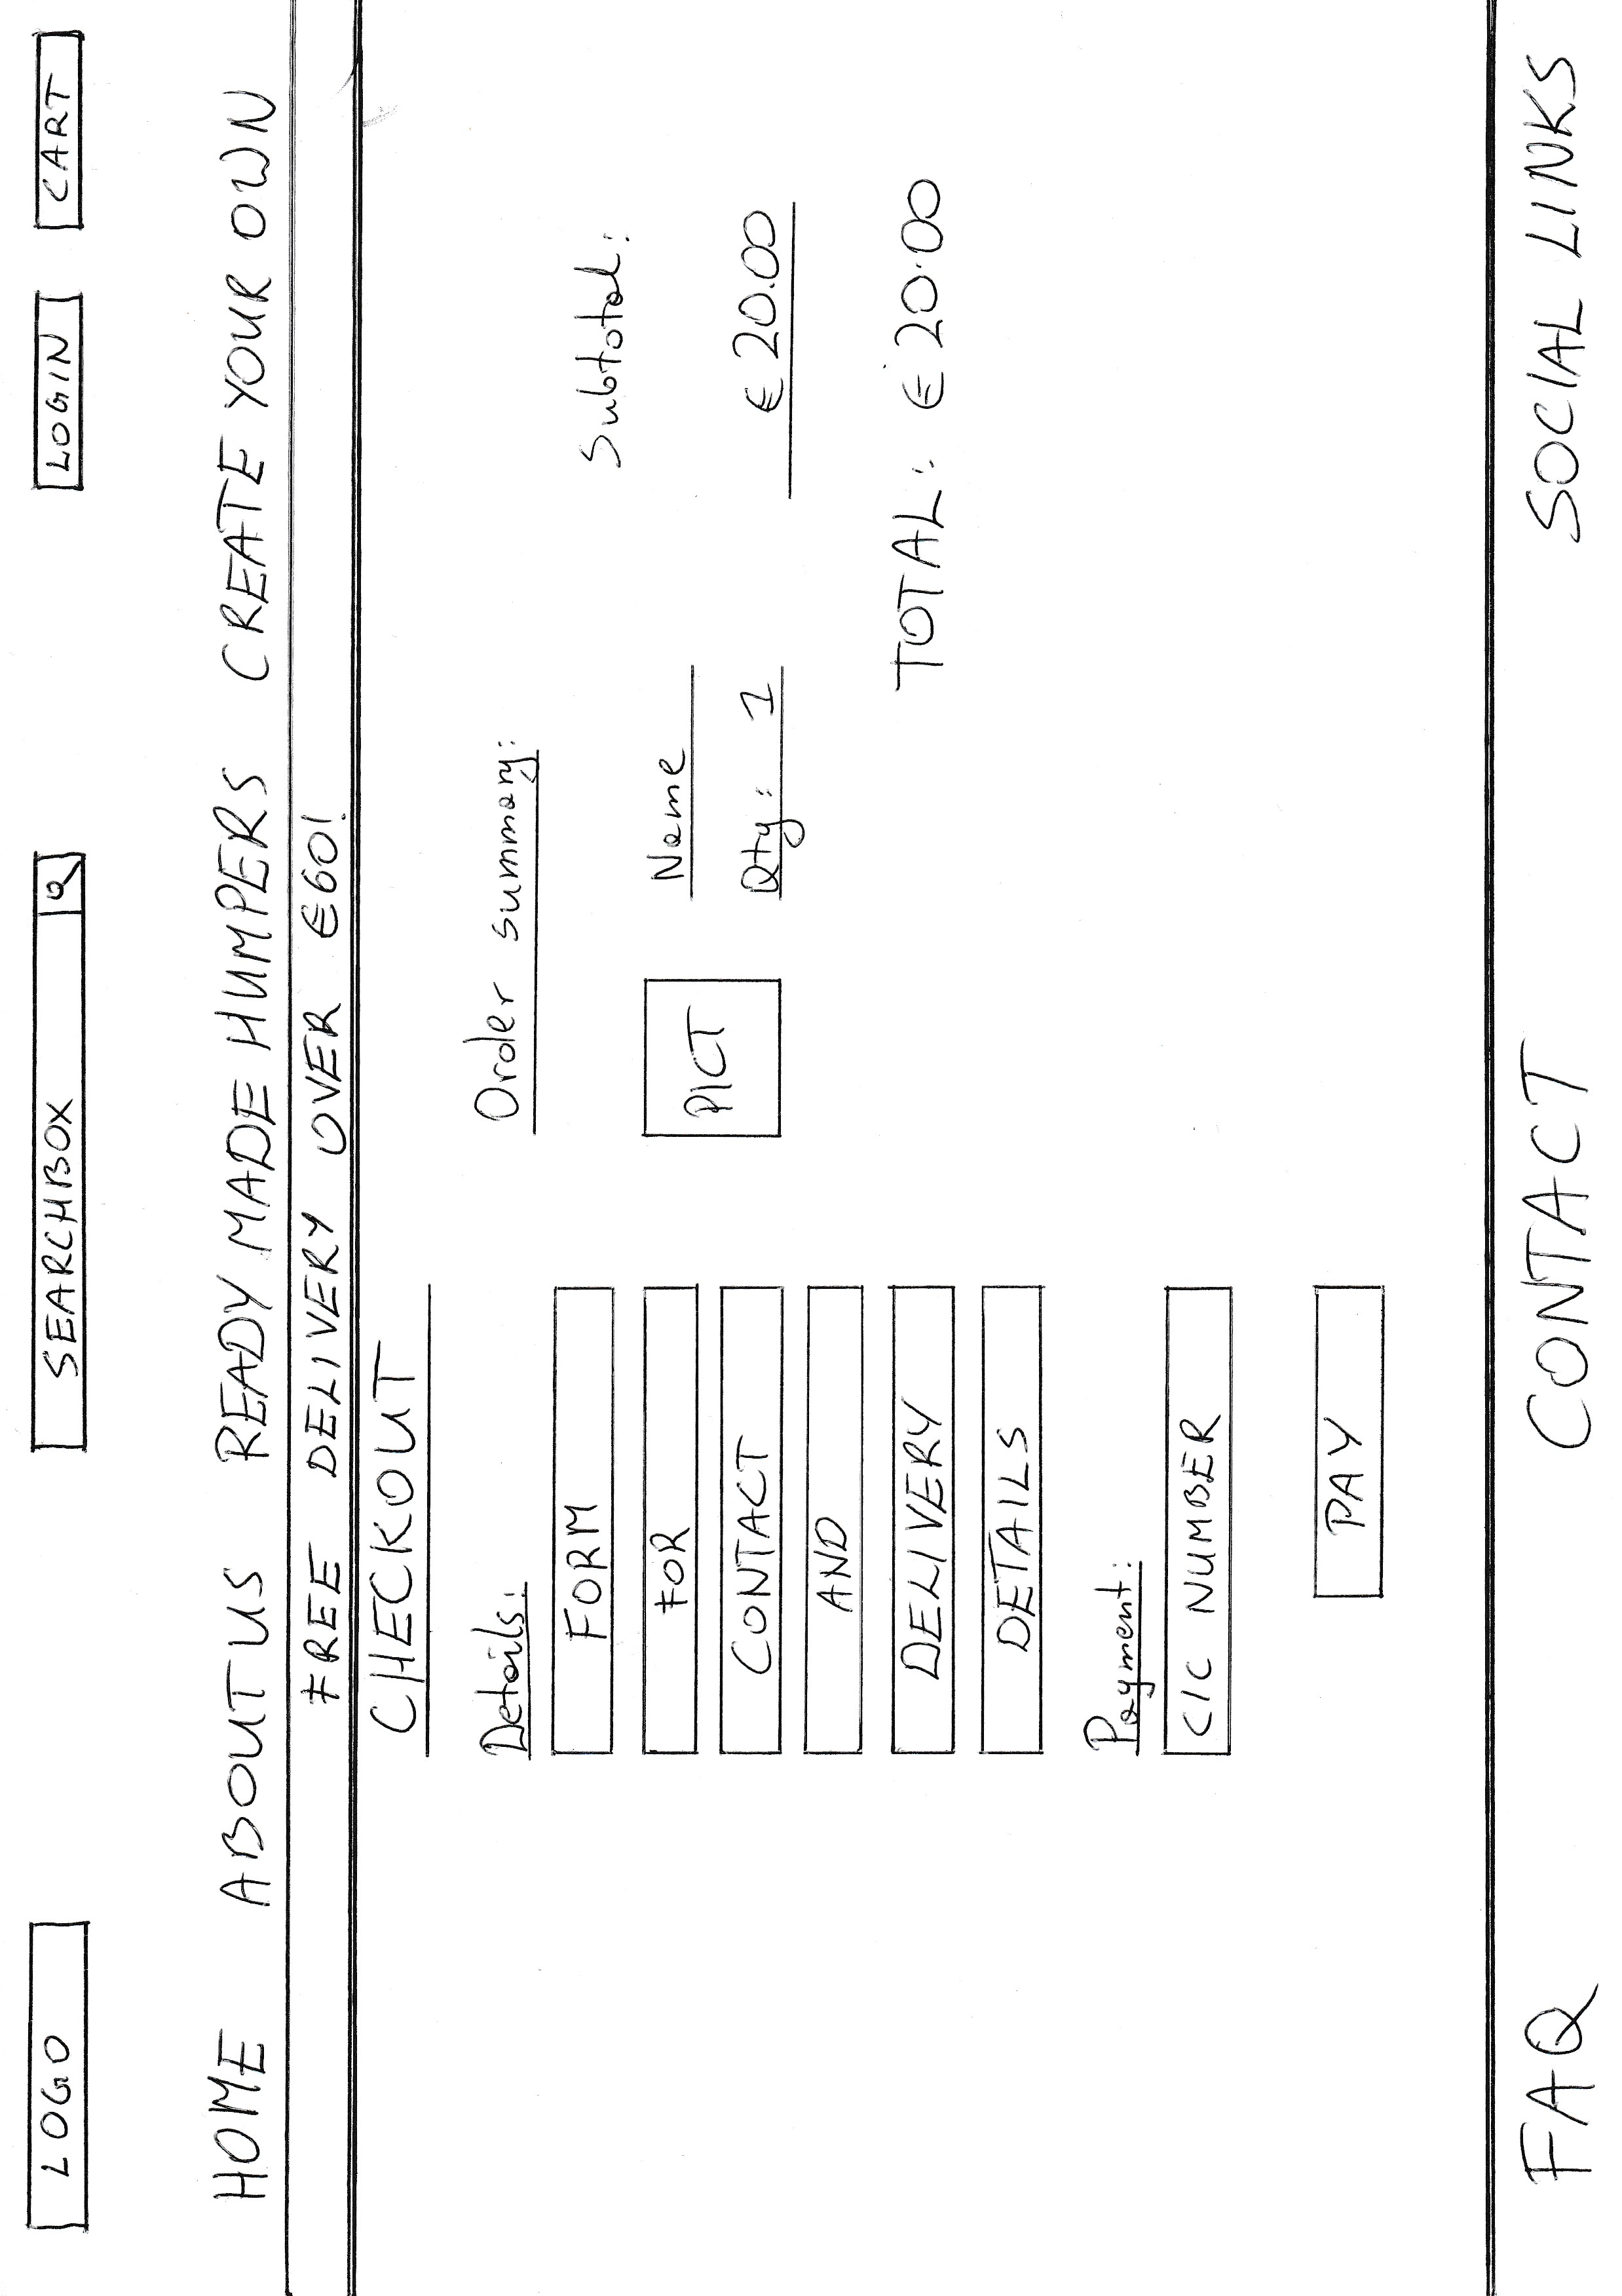 LOGO
SEARCHBOX
LOGIN
CART
HOME ABOUT US READY MADE HUMPERS CREATE YOUR OWN
FREE DELIVERY OVER €60!
CHECKOUT
Details:
FORM
FOR
CONTACT
AND
DELIVERY
DETAILS
Payment:
C/C NUMBER
PAY
Order summary:
Subtotal:
PICT
Name
Qty: 1
€20.00
TOTAL: €20.00
FAQ
CONTACT
SOCIAL LINKS